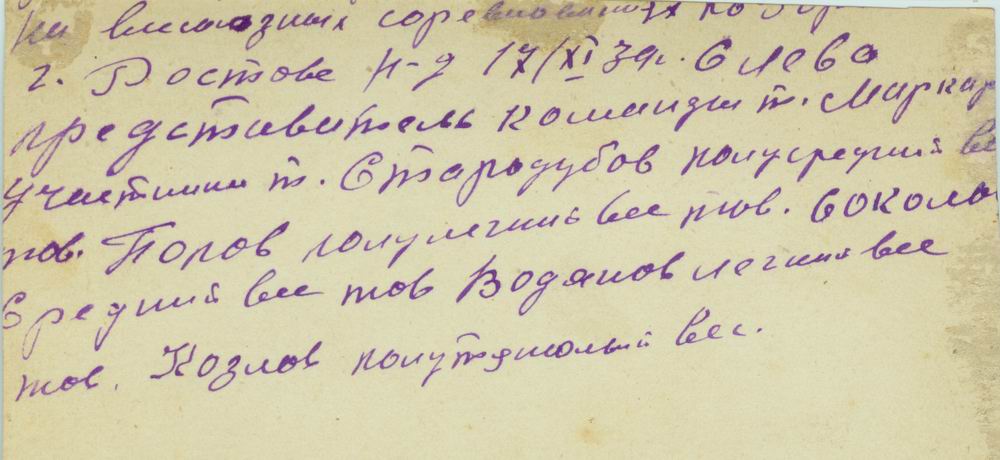 на выездных соревнованиях по
г. Ростове н-Д 17/XI 39г. Слева
представитель команды т. Маркар
Участники т. Стародубов полусредний ве
тов. Попов полулегкий вес тов. Соколо
Средний вес тов Водянов легкий вес
тов. Козлов полутяжолый вес.